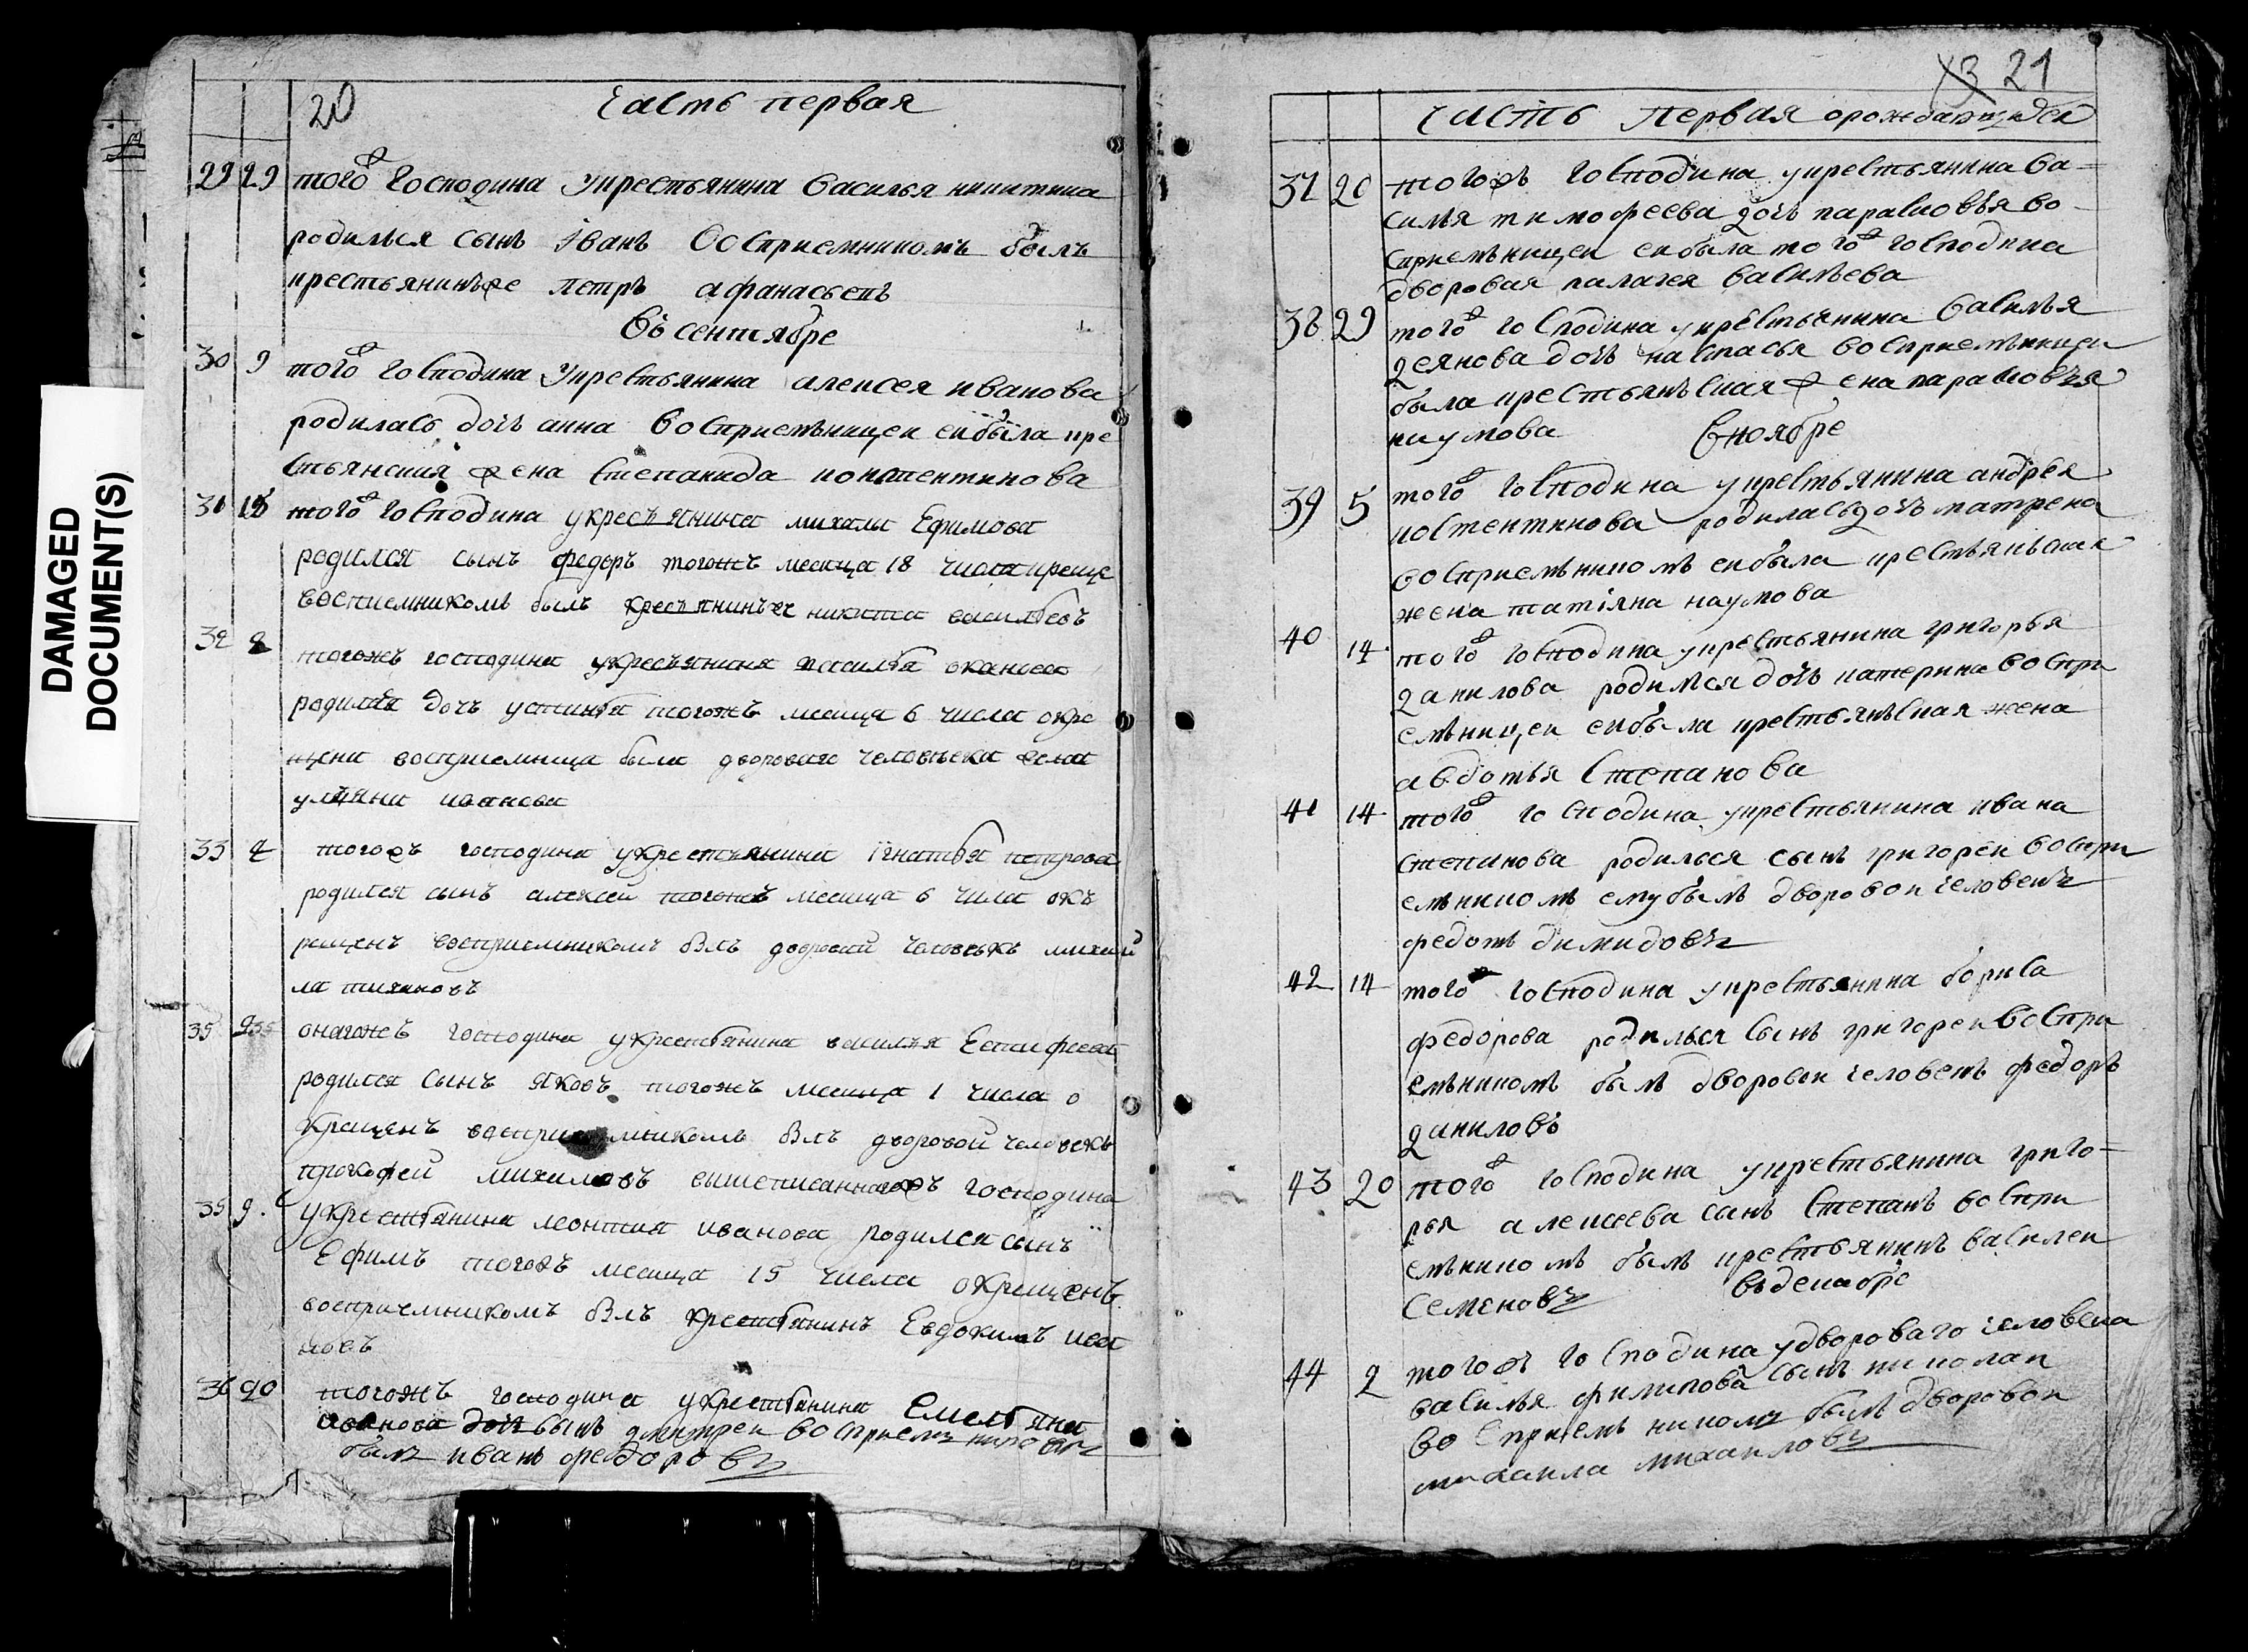 DAMAGED
DOCUMENT(S)
20
Часть первая
29 29 тогож Господина укрестьянина василья никитина
родилься сынъ Иванъ восприемникомъ былъ
крестьянинъже петръ афанасьевъ
въ сентябре
30 9 тогож господина укрестьянина алексея иванова
родилась дочь анна восприемьницеи еи была кре
стьянская жена степанида констентинова
31 15 тогож господина укресъянина михаилы Ефимова
родился сынъ федоръ тогожъ месяца 18 числа креще
воспиемникомъ былъ кресъянинъже никита васильевъ
32 2 тогожъ господина укресъянина
родилая дочь устинья тогожъ месяца 6 числа окре
щена восприемница была двороваго человека жена
ульяна иванова
33 2 тогожъ господина укрестьянина Игнатья петрова
родился сынъ алексей тогожъ месяца 6 числа окъ
рещенъ восприемникомъ былъ дворовай человекъ михаи
ла
35 235 онагожъ господина укрестьянина василья Естифеева
родился сынъ яковъ тогожъ месяца 1 числа о
крещенъ восприемникомъ былъ дворовой человекъ
прокофей михаиловъ вышеписаннагожъ господина
35 9 укрестьянина леонтия иванова родился сынъ
Ефимъ тогожъ месяца 15 числа окрещенъ
восприемникомъ былъ крестьянинъ Евдокимъ ива
новъ
36 20 тогожъ господина укрестьянина Емельяна
иванова дочь сынъ дмитреи восприемъникомъ
былъ иванъ федоровъ
43 21
часть первая орождающихся
37 20 тогожъ господина укрестьянина ва=
силья тимофеева дочь парасковья во
сприемьницеи еи была тогож господина
дворовая палагея васильева
38 29 тогож господина укрестьянина василья
деянова дочь настасья восприемьницеи
была крестьяньская жена парасковья
наумова вноябре
39 5 тогож господина укрестьянина андрея
костентинова родилась дочь матрена
восприемьникомъ еи была крестьяньская
жена татияна наумова
40 14 тогож господина укрестьянина григорья
данилова родилься дочь катерина воспри
емьницеи еи была крестьяньская жена
авдотья степанова
41 14 тогож господина укрестьянина ивана
степанова родилься сынъ григореи воспри
емьникомъ ему былъ дворовои человекъ
федотъ димидовъ
42 14 тогож господина укрестьянина бориса
федорова родилься сынъ григореи воспри
емьникомъ былъ дворовои человекъ федоръ
даниловъ
43 20 тогож господина укрестьянина григо=
рья алексеева сынъ степанъ воспри
емьникомъ былъ крестьянинъ василеи
семеновъ въдекабре
44 2 тогожъ господина удвороваго человека
василья филипова сынъ николаи
восприемьникомъ былъ дворовои
михаила михаиловъ